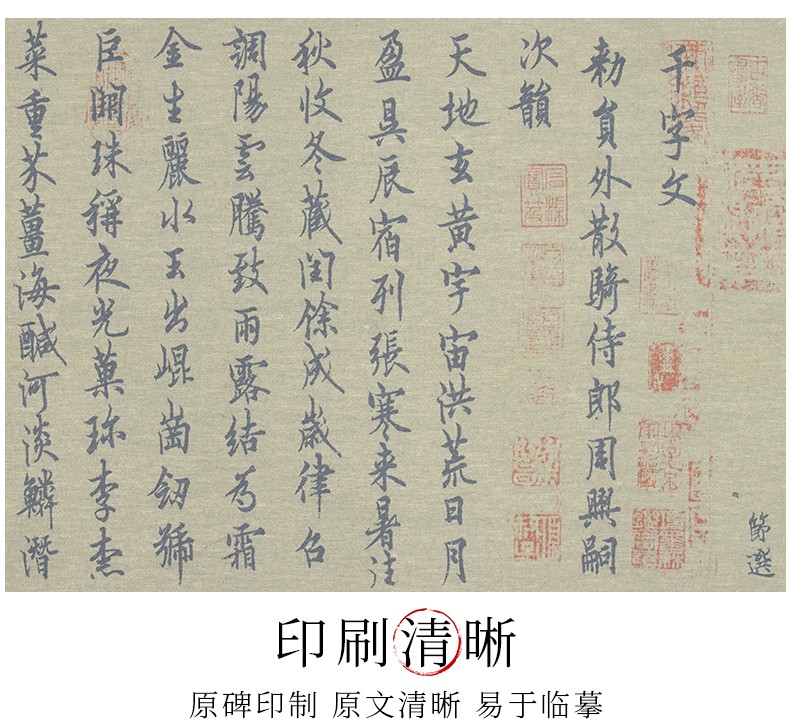 節選
千字文
勑員外散騎侍郎周興嗣
次韻
天地玄黄宇宙洪荒日月
盈昃辰宿列張寒来暑往
秋收冬藏閏餘成歲律召
調陽雲騰致雨露結為霜
金生麗水玉出崐崗劒號
巨闕珠稱夜光菓珎李柰
菜重芥薑海鹹河淡鱗潛
印刷清晰
原碑印制 原文清晰 易于临摹